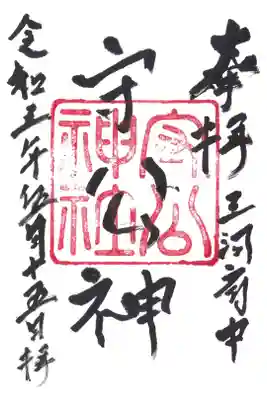 奉拝 三河府中
守公神
守公神社
令和五年伍月十五日拝